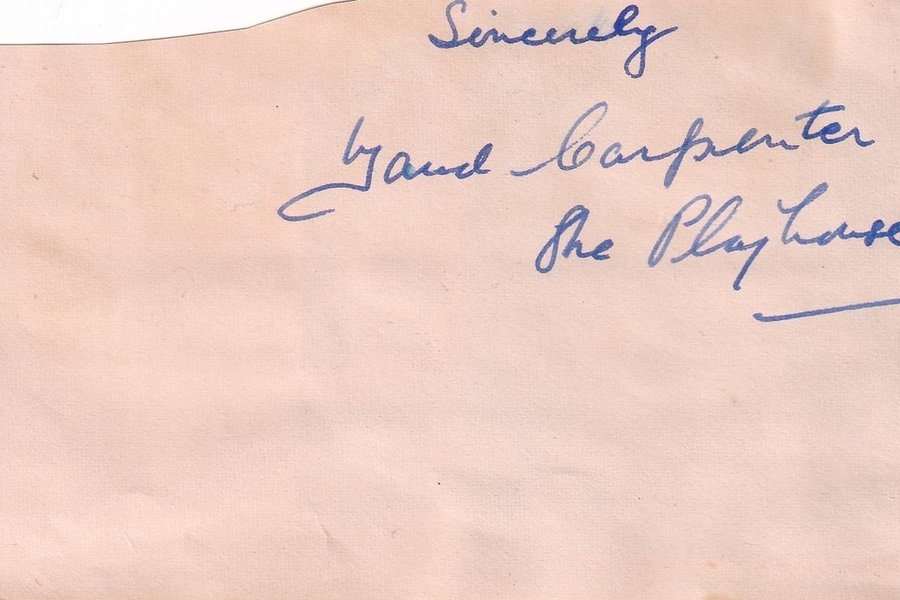 Sincerely
Maud Carpenter
The Playhouse